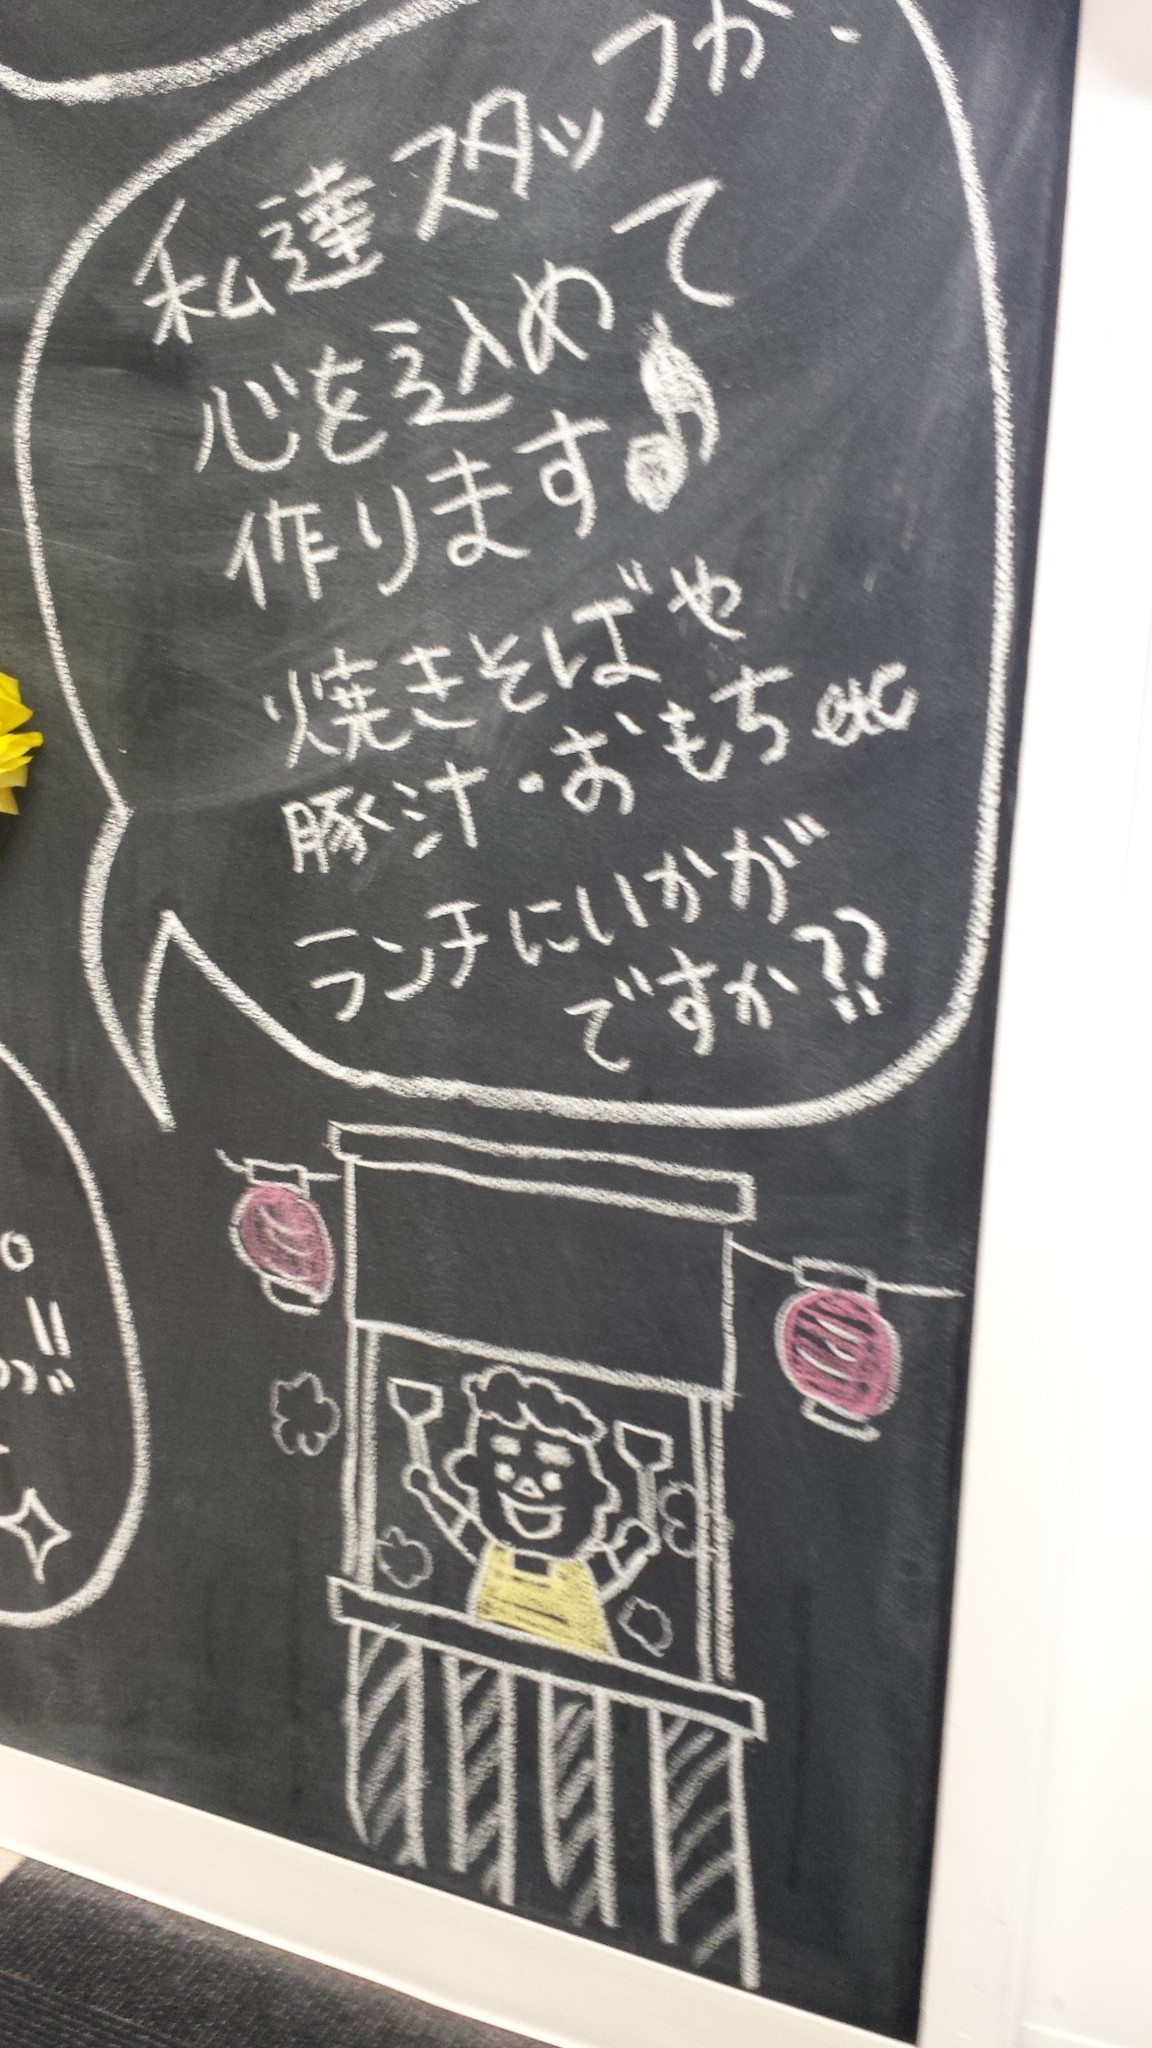 私達スタッフが
心を込めて
作ります♪
焼きそばや
豚汁・おもちetc
ランチにいかが
ですか??